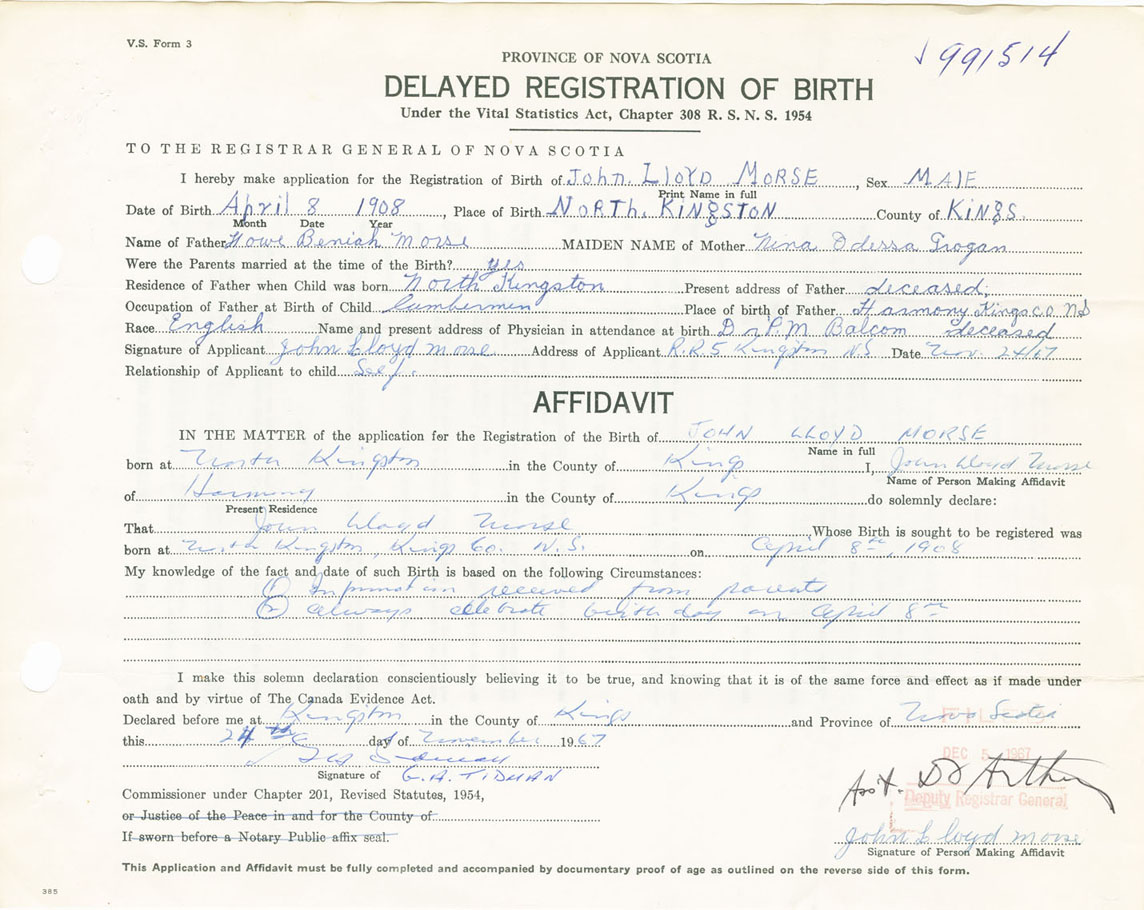 V.S. Form 3
991514
PROVINCE OF NOVA SCOTIA
DELAYED REGISTRATION OF BIRTH
Under the Vital Statistics Act, Chapter 308 R. S. N. S. 1954
TO THE REGISTRAR GENERAL OF NOVA SCOTIA
I hereby make application for the Registration of Birth of John Lloyd Morse, Sex Male
Print Name in full
Date of Birth April 8 1908, Place of Birth North Kingston County of Kings.
Month Date Year
Name of Father Howe Beniah Morse MAIDEN NAME of Mother Nina Odessa Grogan
Were the Parents married at the time of the Birth? yes
Residence of Father when Child was born North Kingston Present address of Father deceased
Occupation of Father at Birth of Child Lumberman Place of birth of Father Harmony Kings co NS
Race English Name and present address of Physician in attendance at birth Dr P.M Balcom deceased
Signature of Applicant John Lloyd Morse Address of Applicant R.R 5 Kingston NS Date Nov. 24/67
Relationship of Applicant to child Self.
AFFIDAVIT
IN THE MATTER of the application for the Registration of the Birth of JOHN LLOYD MORSE
Name in full
born at North Kingston in the County of Kings I, John Lloyd Morse
Name of Person Making Affidavit
of Harmony in the County of Kings do solemnly declare:
Present Residence
That John Lloyd Morse Whose Birth is sought to be registered was
born at North Kingston, Kings Co. N.S. on April 8th, 1908
My knowledge of the fact and date of such Birth is based on the following Circumstances:
(1) Information received from parents
(2) always celebrate birthday on April 8th
I make this solemn declaration conscientiously believing it to be true, and knowing that it is of the same force and effect as if made under
oath and by virtue of The Canada Evidence Act.
Declared before me at Kingston in the County of Kings and Province of Nova Scotia
this 24th day of November 1967
DEC 5 1967
Signature of G.A. TIDMAN
Asst.
Deputy Registrar General
Commissioner under Chapter 201, Revised Statutes, 1954,
or Justice of the Peace in and for the County of
If sworn before a Notary Public affix seal.
John Lloyd Morse
Signature of Person Making Affidavit
This Application and Affidavit must be fully completed and accompanied by documentary proof of age as outlined on the reverse side of this form.
385